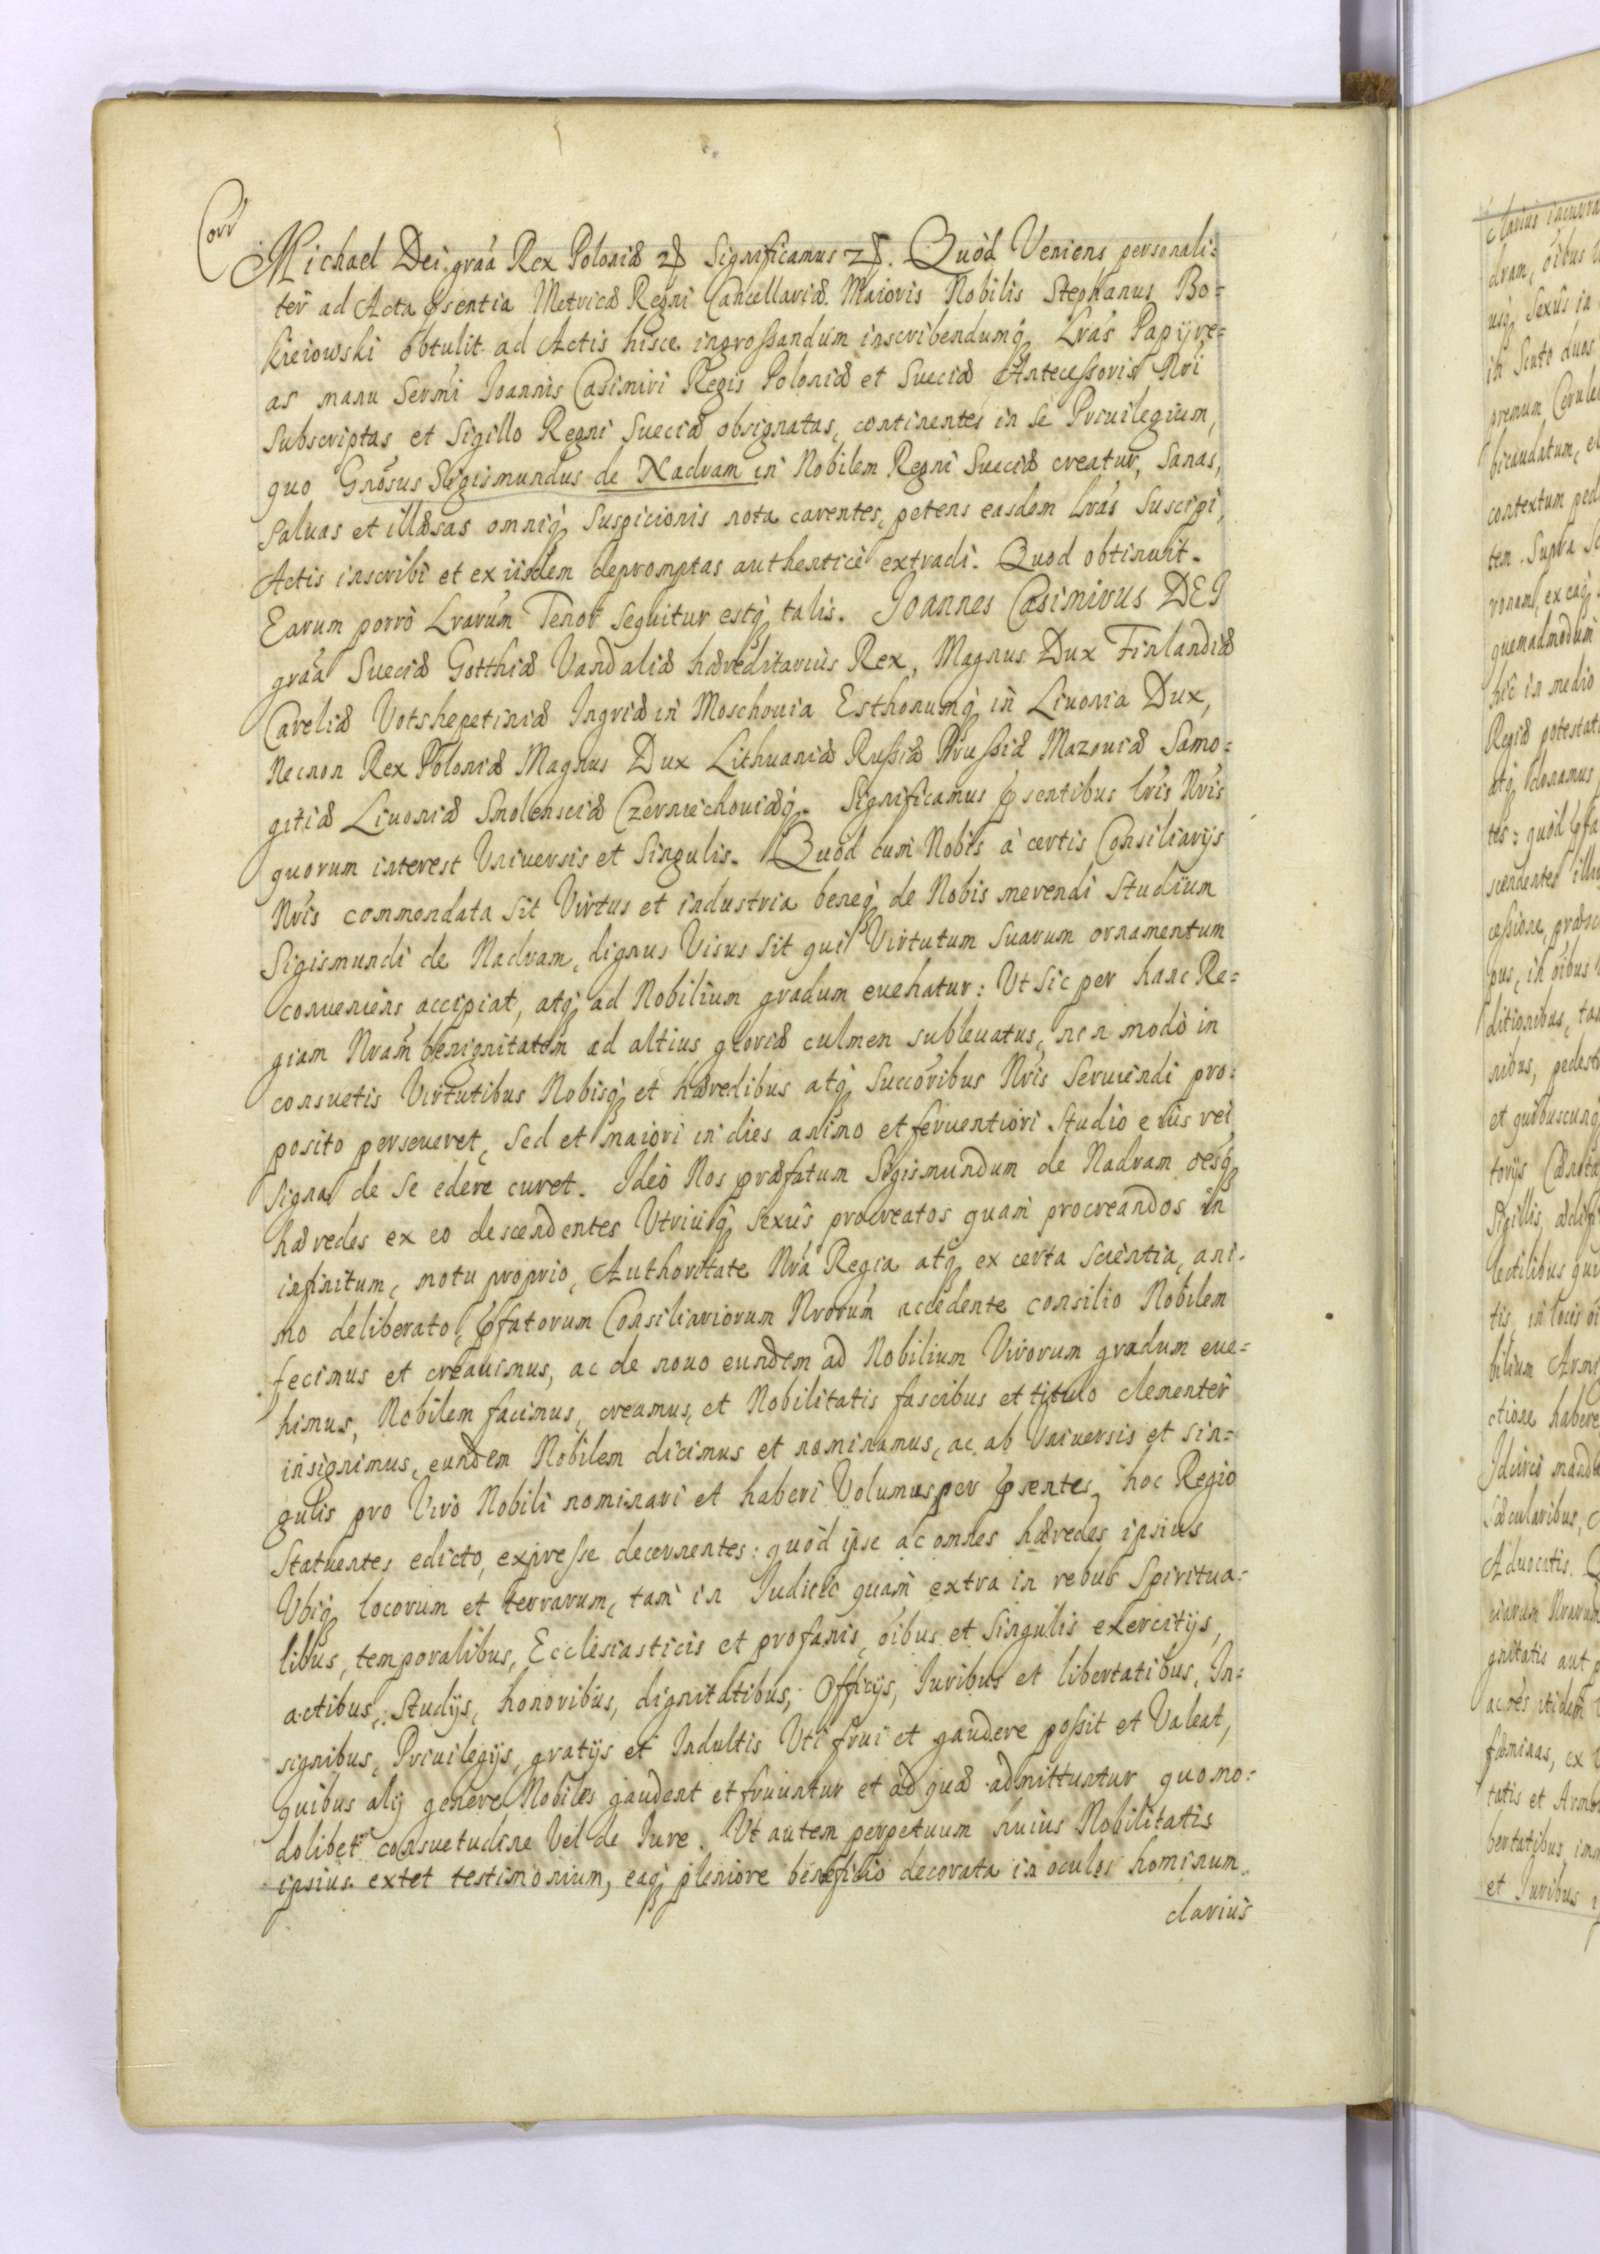 Corr
Michael Dei graã Rex Poloniæ Significamus Quòd Veniens personali:
ter ad Acta pñsentia Metricæ Regni Cancellariæ Maioris Nobilis Stephanus Bo:
kieiowski obtulit ad Actis hisce ingroßandum inscribendumq́ Lrás Papÿre:
as manu Serm̃i Joannis Casimiri Regis Poloniæ et Sueciæ Anteceßoris Nrĩ
subscriptas et Sigillo Regni Sueciæ obsignatas, continentes in se Priuilegium,
quo Gnõsus Sigismundus de Nadram in Nobilem Regni Sueciæ creatur, Sanas,
saluas et illæsas omniq́ Suspicionis nota carentes, petens easdem Lrás Suscipi,
Actis inscribi et ex iisdem depromptas authenticè extradi. Quod obtinuit.
Earum porrò Lrarum̃ Tenor sequitur estq́ talis. Joannes Casimirus DEI
graã Sueciæ Gotthiæ Vandaliæ hæreditarius Rex, Magnus Dux Finlandiæ
Careliæ Votshepetiniæ Ingriæ in Moschouia Esthonumq́ in Liuonia Dux,
Necnon Rex Poloniæ Magnus Dux Lithuaniæ Rußiæ Prußiæ Mazouiæ Samo:
gitiæ Liuoniæ Smolensciæ Czerniechouiæq́. Significamus pñsentibus lrĩs Nrĩs
quorum interest Vniuersis et Singulis. Quòd cum Nobis à certis Consiliarijs
Nrĩs commendata sit Virtus et industria beneq́ de Nobis merendi Studium
Sigismundi de Nadram, dignus Visus sit qui Virtutum suarum ornamentum
conueniens accipiat, atq́ ad Nobilium gradum euehatur: Vt sic per hanc Re:
giam Nram̃ benignitatem ad altius gloriæ culmen subleuatus, non modò in
consuetis Virtutibus Nobisq́ et hæredibus atq́ Succõribus Nrĩs Seruiendi pro:
posito perseueret, sed et maiori in dies animo et feruentiori Studio eius rei
signa de se edere curet. Ideò Nos præfatum Sigismundum de Nadram oẽsq́
hæredes ex eo descendentes Vtriusq́ sexûs procreatos quam procreandos in
infinitum, motu proprio, Authoritate Nrã Regia atq́ ex certa scientia, ani:
mo deliberato, pfatorum Consiliariorum Nrorum̃ accedente consilio Nobilem
fecimus et creauimus, ac de nouo eundem ad Nobilium Virorum gradum eue:
himus, Nobilem facimus, creamus, et Nobilitatis fascibus et titulo clementer
insignimus, eundem Nobilem dicimus et nominamus, ac ab Vniuersis et Sin:
gulis pro Viro Nobili nominari et haberi Volumus per pñsentes, hoc Regio
Statuentes edicto, expresse decernentes: quòd ipse ac omnes hæredes ipsius
Vbiq́ locorum et terrarum, tam in Judicio quàm extra in rebus Spiritua:
libus, temporalibus, Ecclesiasticis et profanis, oĩbus et Singulis exercitijs,
actibus, Studijs, honoribus, dignitatibus, Officijs, Juribus et libertatibus, In:
signibus, Priuilegijs, gratijs et Indultis Vti frui et gaudere poßit et Valeat,
quibus alij genere Nobiles gaudent et fruuntur et ad quæ admittuntur quomo:
dolibet consuetudine Vel de Jure. Vt autem perpetuum huius Nobilitatis
ipsius extet testimonium, eaq́ pleniore beneficio decorata in oculos hominum
clariùs